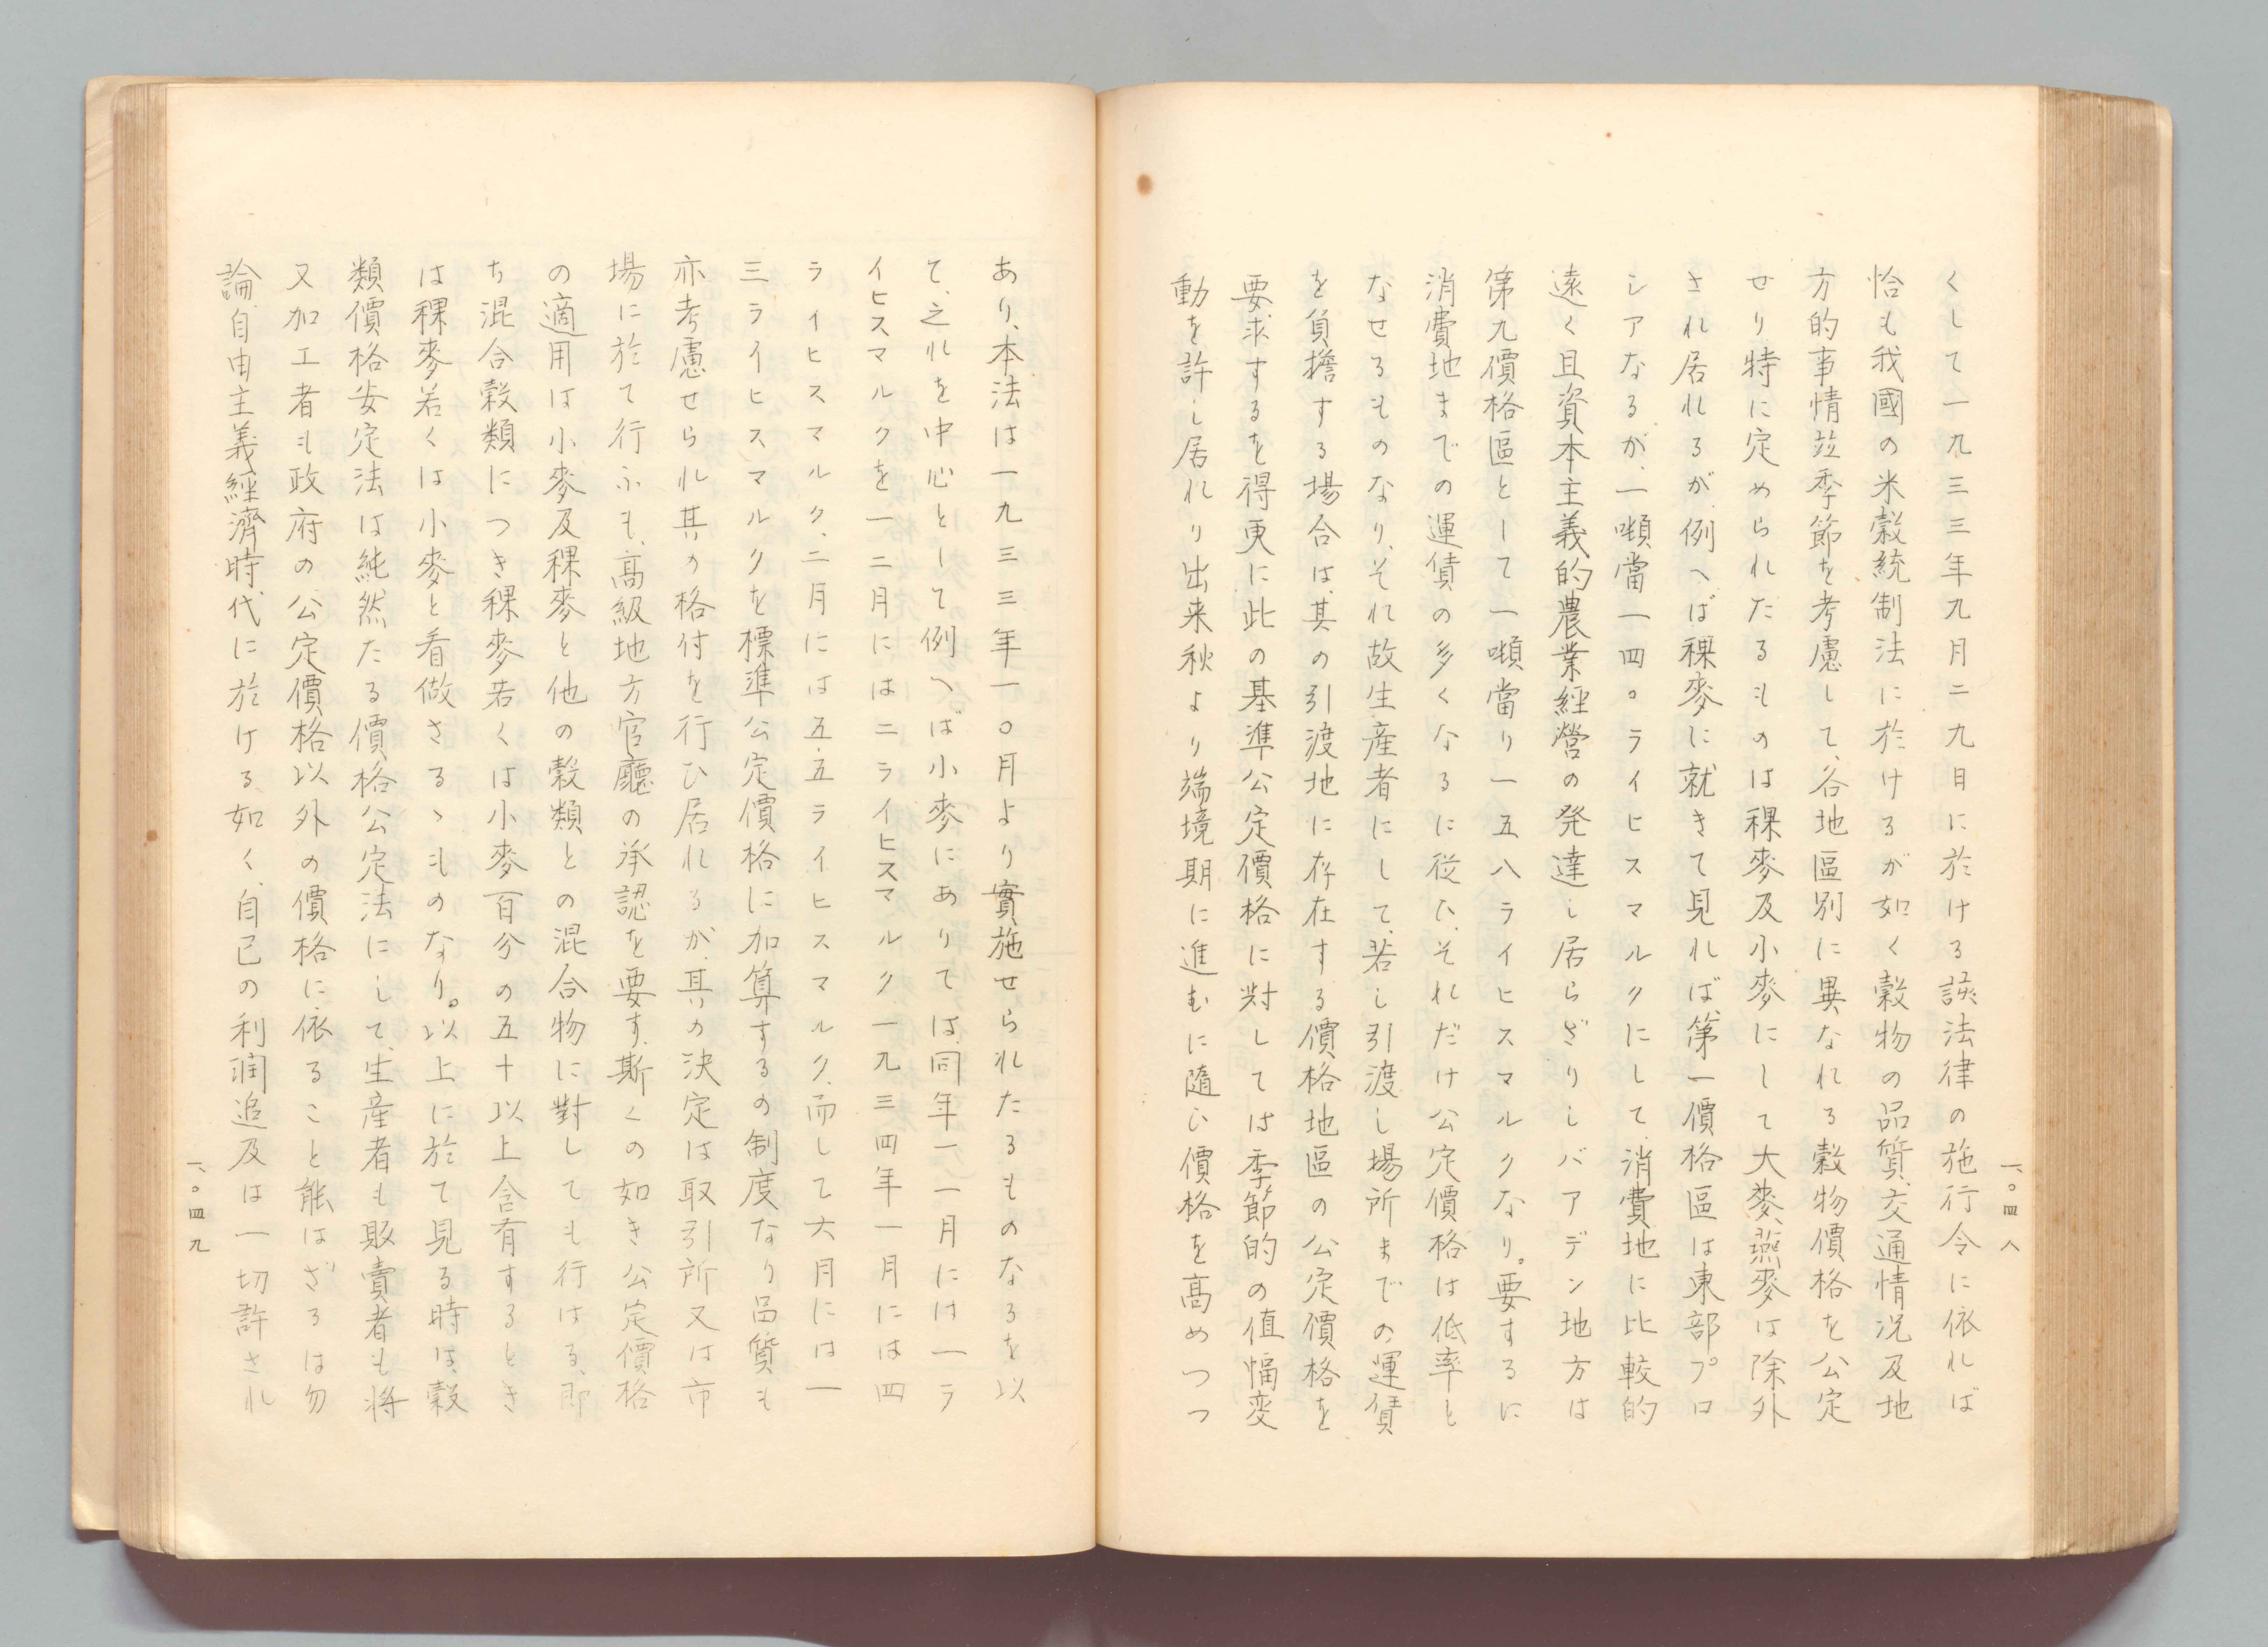 くして一九三三年九月二九日に於ける該法律の施行令に依れば
恰も我國の米穀統制法に於けるが如く穀物の品質、交通情況及地
方的事情竝季節を考慮して、各地區別に異なれる穀物價格を公定
せり特に定められたるものは稞麥及小麥にして大麥、燕麥は除外
され居れるが、例へば稞麥に就きて見れば、第一價格區は東部プロ
シアなるが、一噸當一四〇ライヒスマルクにして、消費地に比較的
遠く且資本主義的農業経營の発達し居らざりしバアデン地方は
第九價格區として一噸當り一五八ライヒスマルクなり。要するに
消費地までの運賃の多くなるに従ひ、それだけ公定價格は低率と
なせるものなり、それ故生産者にして、若し引渡し場所までの運賃
を負擔する場合は、其の引渡地に存在する價格地區の公定價格を
要求するを得更に此の基準公定價格に對しては季節的の値幅変
動を許し居れり出来秋より端境期に進むに隨ひ價格を高めつつ
一、〇四八
あり、本法は一九三三年一〇月より實施せられたるものなるを以
て、之れを中心として例へば小麥にありては、同年一一月には一ラ
イヒスマルクを一二月には二ライヒスマルク、一九三四年一月には四
ライヒスマルク、二月には五、五ライヒスマルク、而して六月には一
三ライヒスマルクを標準公定價格に加算するの制度なり品質も
亦考慮せられ其の格付を行ひ居れるが、其の決定は取引所又は市
場に於て行ふも、高級地方官廳の承認を要す、斯くの如き公定價格
の適用は小麥及稞麥と他の穀類との混合物に對しても行はる、即
ち混合穀類につき稞麥若くは小麥百分の五十以上含有するとき
は稞麥若くは小麥と看做さるゝものなり。以上に於て見る時は、穀
類價格安定法は純然たる價格公定法にして、生産者も販賣者も将
又加工者も政府の公定價格以外の價格に依ること能はざるは勿
論、自由主義経濟時代に於ける如く、自己の利潤追及は一切許され
一、〇四九